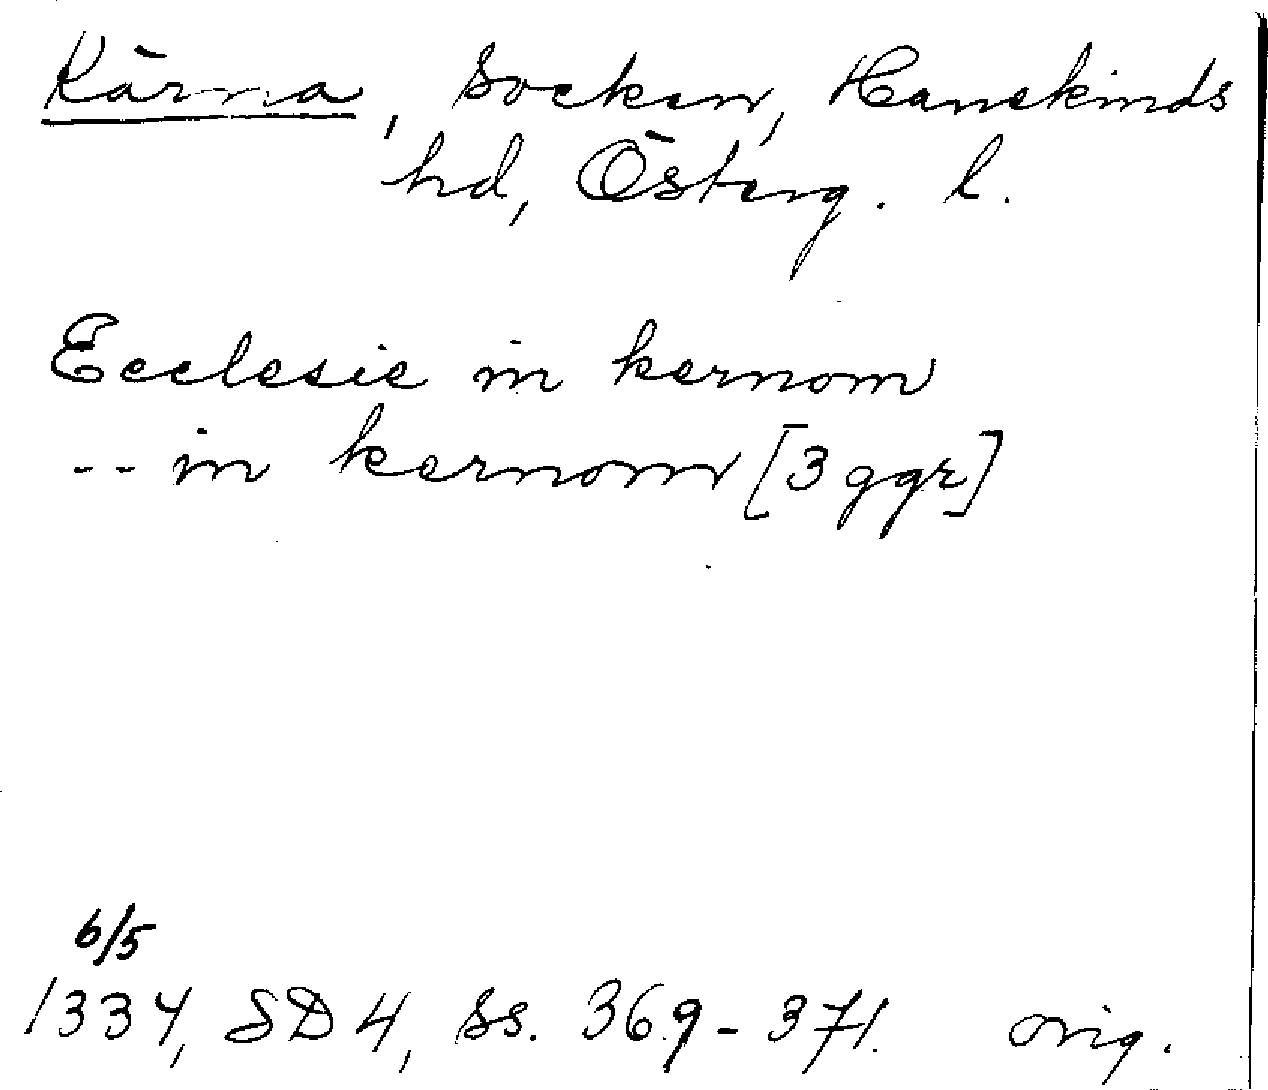 Kärna, socken, Hanekinds
hd, Österg. l.
Ecclesie in kernom
-- in kernom [3 ggr]
6/5
1334, SD 4, ss. 369-371. orig.